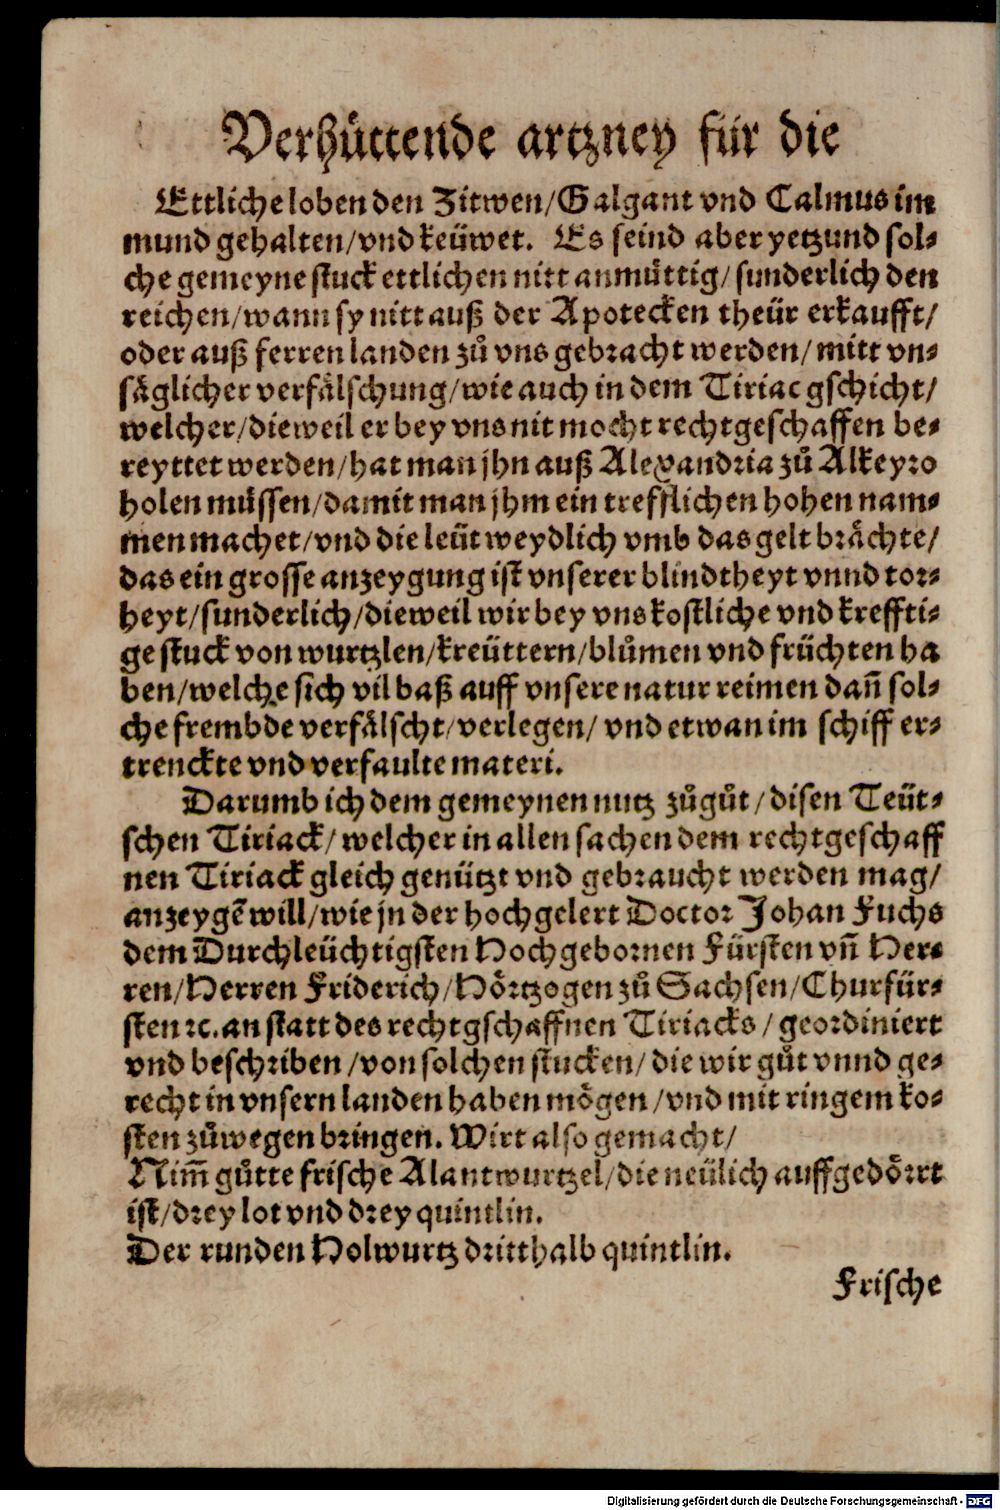 Verhüttende artzney für die
Ettliche loben den Zitwen/Galgant vnd Calmus im
mund gehalten/vnd keüwet. Es seind aber yetzund sol⸗
che gemeyne stuck ettlichen nitt anmüttig/ sunderlich den
reichen/wann sy nitt auß der Apotecken theür erkaufft/
oder auß ferren landen zů vns gebracht werden/ mitt vn⸗
säglicher verfälschung/wie auch in dem Tiriac gschicht/
welcher/dieweil er bey vns nit mocht rechtgeschaffen be⸗
reyttet werden/hat man jhn auß Alexandria zů Alkeyro
holen müssen/damit man jhm ein trefflichen hohen nam⸗
men machet/vnd die leüt weydlich vmb das gelt brächte/
das ein grosse anzeygung ist vnserer blindtheyt vnnd tor⸗
heyt/sunderlich/dieweil wir bey vns kostliche vnd kreffti⸗
ge stuck von wurtzlen/kreüttern/blůmen vnd früchten ha
ben/welche sich vil baß auff vnsere natur reimen dañ sol⸗
che frembde verfälscht/verlegen/ vnd etwan im schiff er⸗
trenckte vnd verfaulte materi.
Darumb ich dem gemeynen nutz zůgůt/disen Teüt⸗
schen Tiriack/ welcher in allen sachen dem rechtgeschaff
nen Tiriack gleich genützt vnd gebraucht werden mag/
anzeygẽ will/wie jn der hochgelert Doctor Johan Fuchs
dem Durchleüchtigsten Hochgebornen Fürsten vñ Her⸗
ren/Herren Friderich/Hörtzogen zů Sachsen/Churfür⸗
sten ⁊c. an statt des rechtgschaffnen Tiriacks / geordiniert
vnd beschriben /von solchen stucken/ die wir gůt vnnd ge⸗
recht in vnsern landen haben mögen /vnd mit ringem ko⸗
sten zůwegen bringen. Wirt also gemacht/
Nim̃ gůtte frische Alantwurtzel/die neülich auffgedörrt
ist/drey lot vnd drey quintlin.
Der runden Holwurtz dritthalb quintlin.
Frische
Digitalisierung gefördert durch die Deutsche Forschungsgemeinschaft - DFG